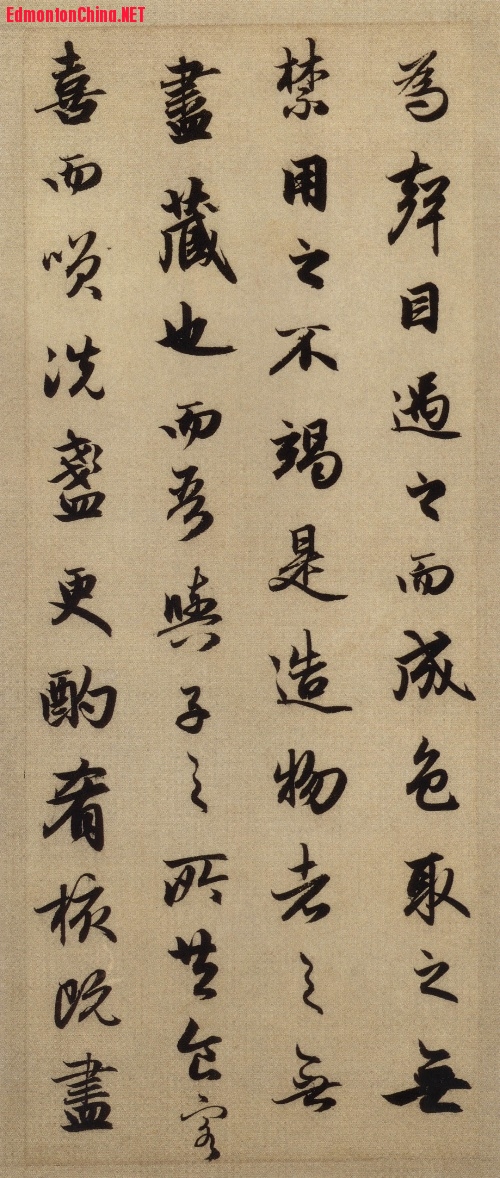 EdmontonChina.NET
為聲目遇之而成色取之無
禁用之不竭是造物者之無
盡藏也而吾與子之所共食客
喜而咲洗盞更酌肴核既盡